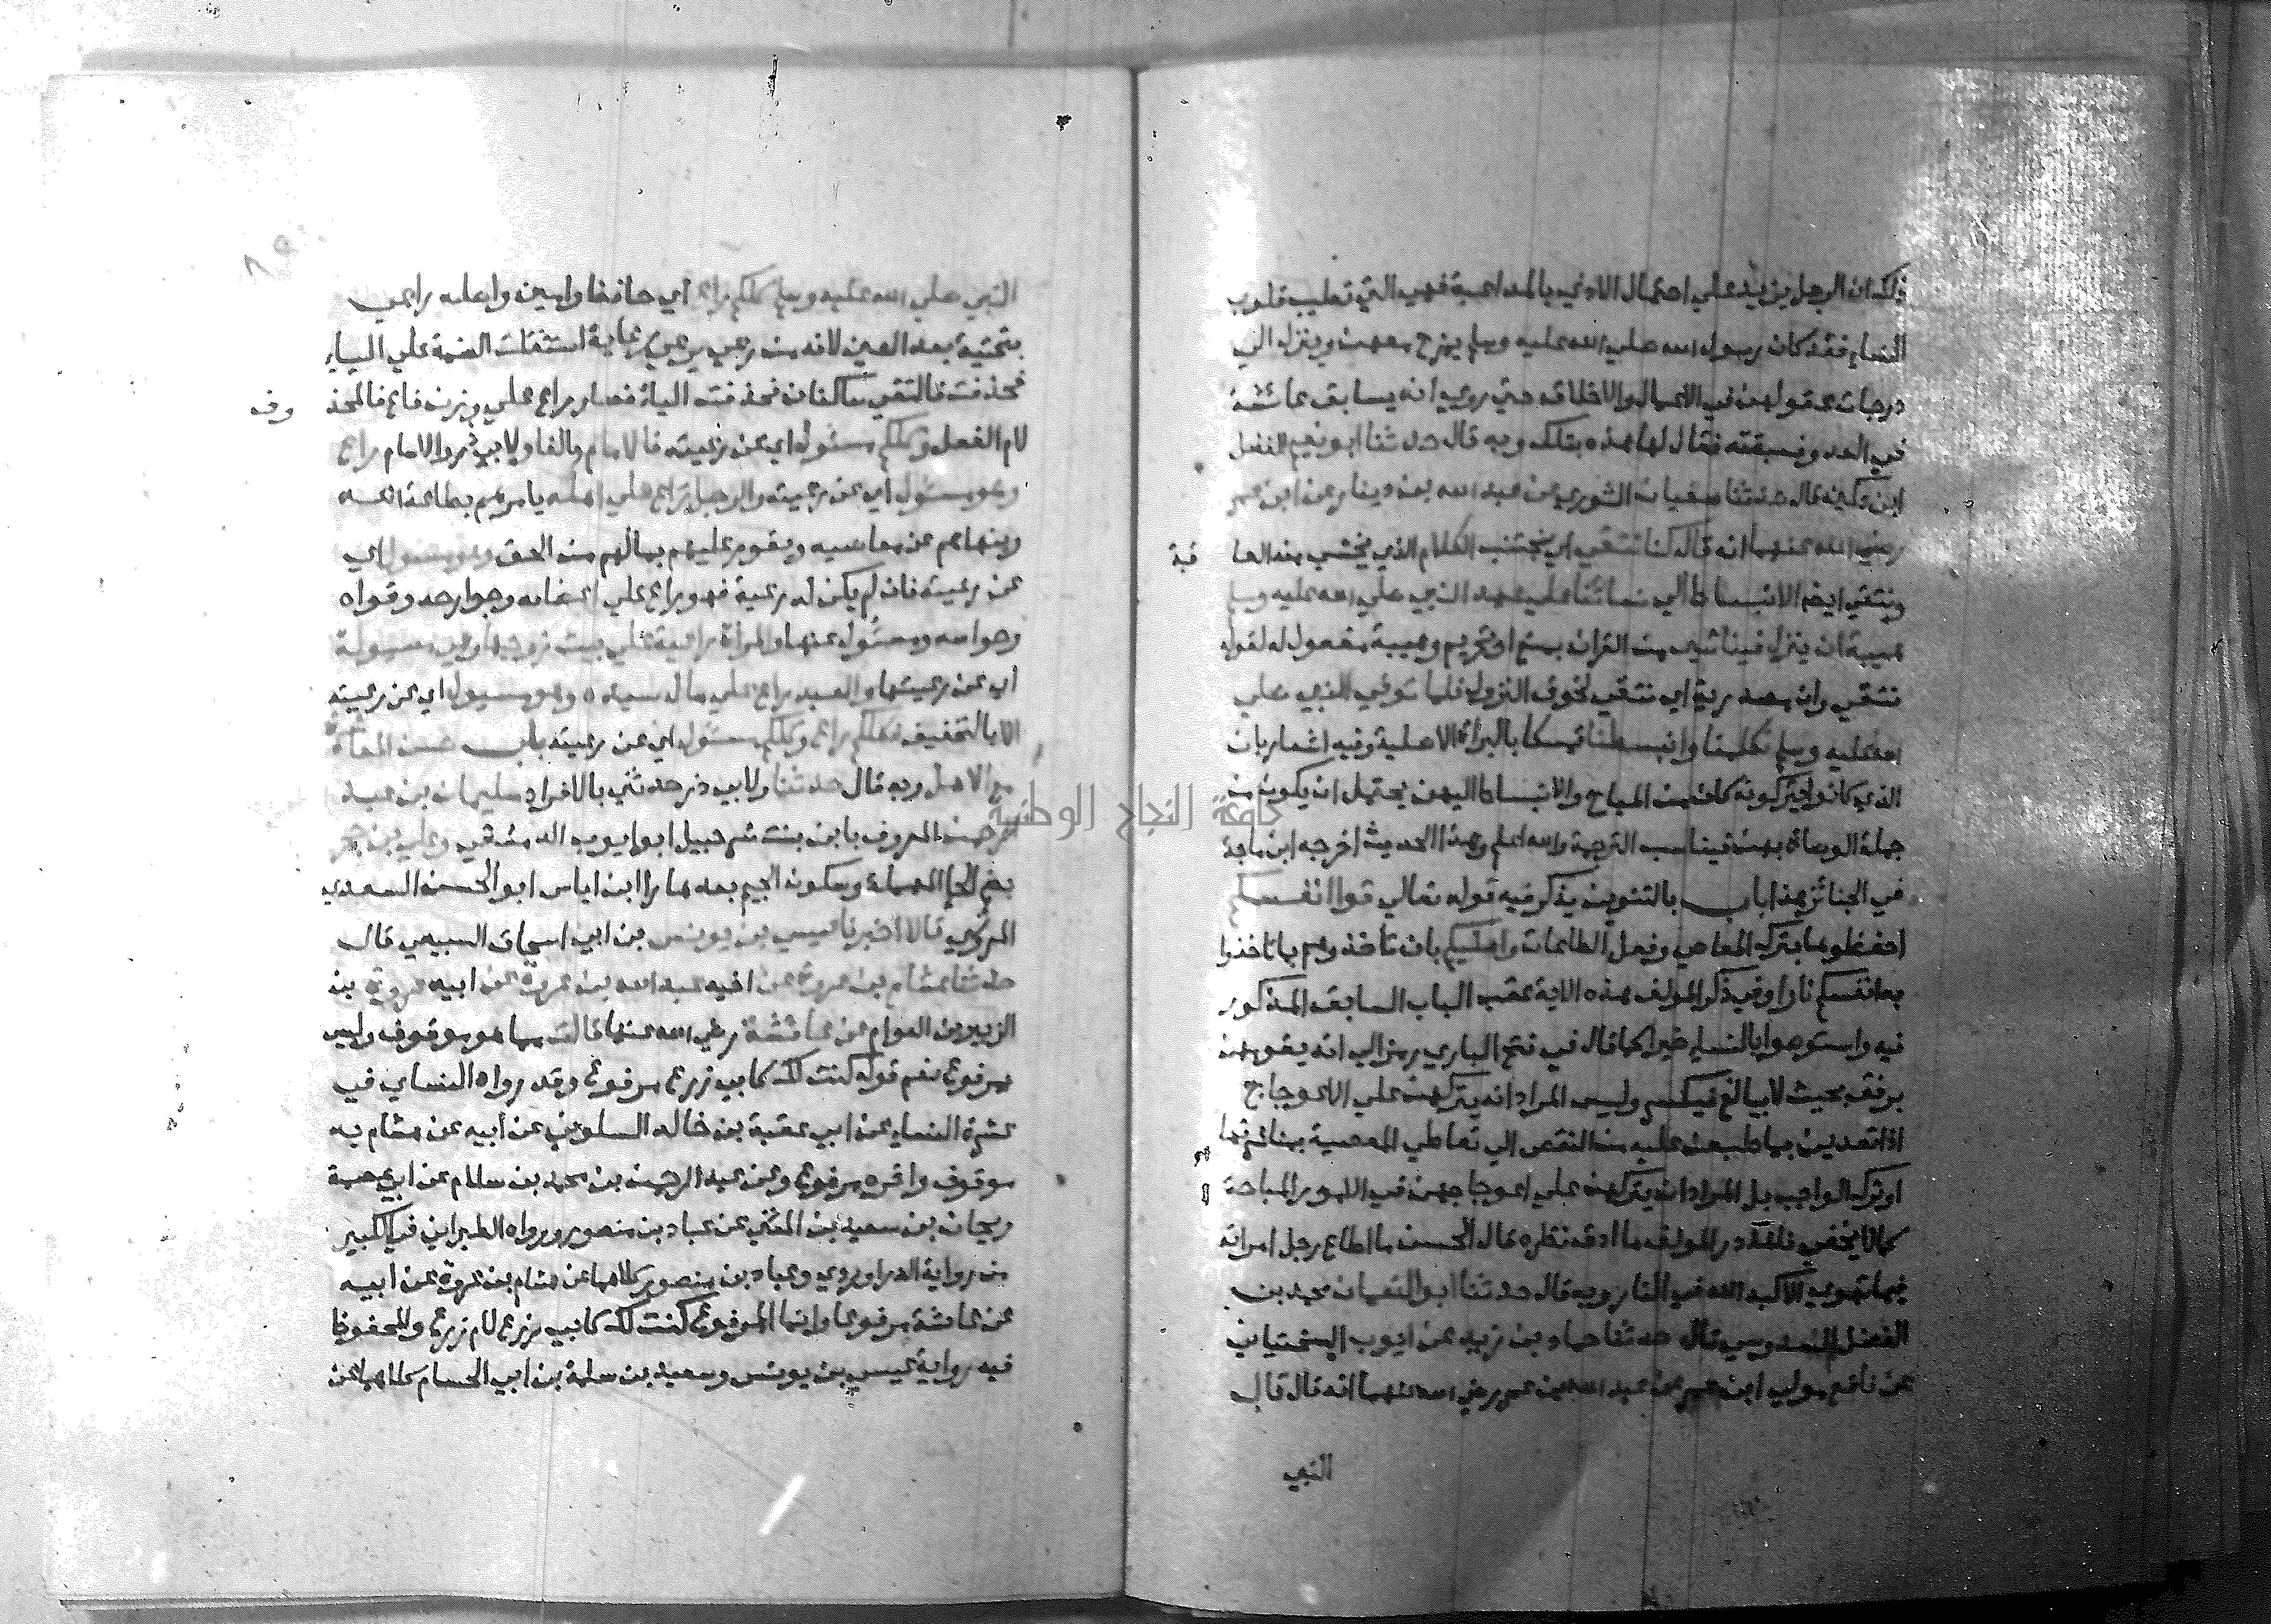 ذلك ان الرجل يزيد علي احتمال الاذي بالمداعبة فهي التي تطيب قلوب
النساء فقد كان رسول الله صلي الله عليه وسلم يمزح معهن وينزل الي
درجات عقولهن في الاعمال والاخلاق حتي روي انه يسابق عائشة
في العدو فسبقته فقال لها هذه بتلك وبه قال حدثنا ابو نعيم الفضل
ابن دكين قال حدثنا سفيان الثوري عن عبد الله بن دينار عن ابن عمر
رضي الله عنهما انه قال كنا نتقي اي نجتنب الكلام الذي يخشي منه العا
قبة
ونتقي ايضا الانبساط الي نسائنا علي عهد النبي صلي الله عليه وسلم
هيبة ان ينزل فينا شيء من القران بمنع او تحريم وهيبة مفعول له لقوله
نتقي وان مصدرية اي نتقي لخوف النزول فلما توفي النبي صلي
الله عليه وسلم تكلمنا وانبسطنا تمسكا بالبراة الاصلية وفيه اشعار بان
الذي كانوا يتركونه كان من المباح والانبساط اليهن يحتمل ان يكون من
جملة الوصاة بهن فيناسب الترجمة والله اعلم وهذا الحديث اخرجه ابن ماجة
في الجنائز هذا باب بالتنوين يذكر فيه قوله تعالي قوا انفسكم
احفظوها بترك المعاصي وفعل الطاعات واهليكم بان تاخذوهم بما تاخذوا
به انفسكم نارا وفي ذكر المولف هذه الاية عقب الباب السابق المذكور
فيه واستوصوا بالنساء خيرا كما قال في فتح الباري رمز الي انه يقومهن
برفق بحيث لا يبالغ فيكسر وليس المراد انه يتركهن علي الاعوجاج
اذا تعدين ما طبعن عليه من النقص الي تعاطي المعصية بمباشرتها
او ترك الواجب بل المراد ان يتركهن علي اعوجاجهن في الامور المباحة
كما لا يخفي فلله در المولف ما ادق نظره قال الحسن ما اطاع رجل امراته
فيما تهوي الا كبه الله في النار وبه قال حدثنا ابو النعمان محمد بن
الفضل السدوسي قال حدثنا حماد بن زيد عن ايوب السختياني
عن نافع مولي ابن عمر عن عبد الله بن عمر رضي الله عنهما انه قال قال
النبي
النبي صلي الله عليه وسلم كلكم راع اي حافظ وامين واصله راعي
بتحتية بعد العين لانه من رعي يرعي رعاية استثقلت الضمة علي الياء
فحذفت فالتقي ساكنان فحذفت الياء فصار راع علي وزن فاع فالمحذ
وف
لام الفعل وكلكم مسئول اي عن رعيته فالامام بالفا ولابي ذر والامام راع
وهو مسئول اي عن رعيته والرجل راع علي اهله يامرهم بطاعة الله
وينهاهم عن معاصيه ويقوم عليهم بما لهم من الحق وهو مسئول اي
عن رعيته فان لم يكن له رعية فهو راع علي اعضائه وجوارحه وقواه
وحواسه ومسئول عنها والمراة راعية علي بيت زوجها وهي مسئولة
اي عن رعيتها والعبد راع علي مال سيده وهو مسئول اي عن رعيته
الا بالتخفيف فكلكم راع وكلكم مسئول اي عن رعيته باب حسن المعاشرة
مع الاهل وبه قال حدثنا ولابي ذر حدثني بالافراد سليمان بن عبد
الرحمن المعروف بابن بنت شرحبيل ابو ايوب الدمشقي وعلي بن حجر
بضم الحا المهملة وسكون الجيم بعدها را ابن اياس ابو الحسن السعدي
المروزي قالا اخبرنا عيسي بن يونس بن ابي اسحاق السبيعي قال
حدثنا هشام بن عروة عن اخيه عبد الله بن عروة عن ابيه عروة بن
الزبير بن العوام عن عائشة رضي الله عنها قالت مما هو موقوف وليس
بمرفوع نعم قوله كنت لك كابي زرع مرفوع وقد رواه النساي في
عشرة النساء عن ابي عقبة بن خالد السلوني عن ابيه عن هشام به
موقوف واخره مرفوع وعن عبد الرحمن بن محمد بن سلام عن ابي عصمة
ريحان بن سعيد بن المثني عن عباد بن منصور ورواه الطبراني في الكبير
من رواية الدراوردي وعباد بن منصور كلاهما عن هشام بن عروة عن ابيه
عن عائشة مرفوعا وانما المرفوع كنت لك كابي زرع لام زرع والمحفوظ
فيه رواية عيسي بن يونس وسعيد بن سلمة بن ابي الحسام كلاهما عن
جامعة النجاح الوطنية